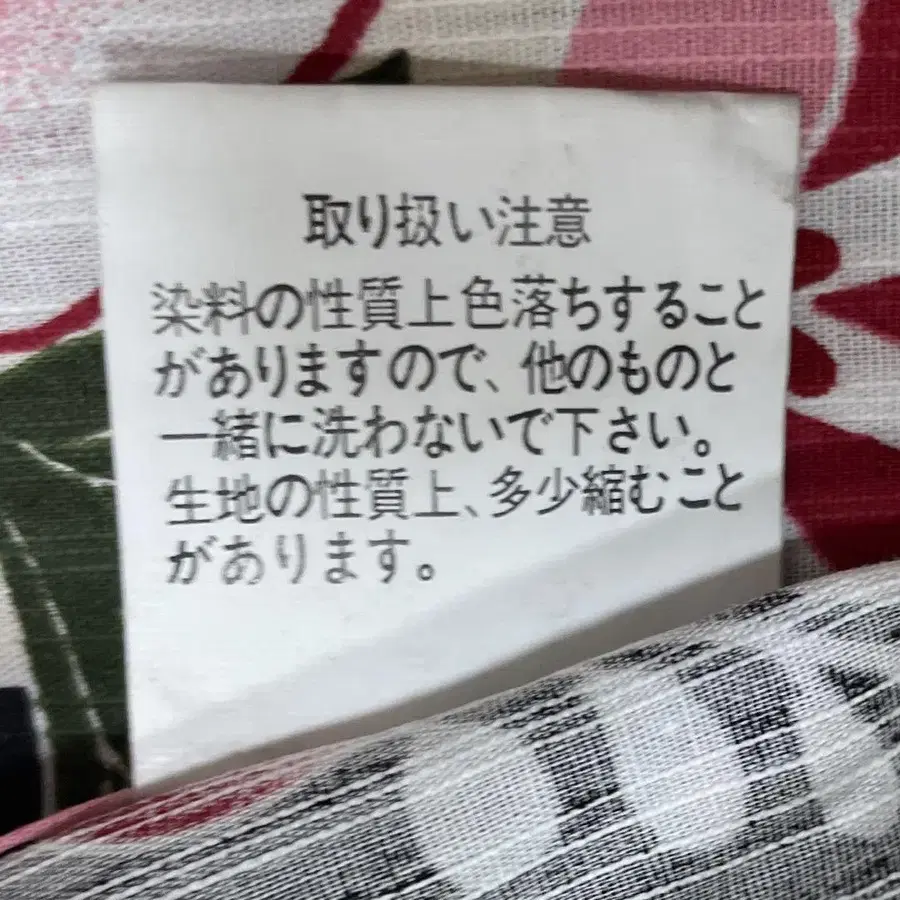 取り扱い注意
染料の性質上色落ちすること
がありますので、他のものと
一緒に洗わないで下さい。
生地の性質上、多少縮むこと
があります。